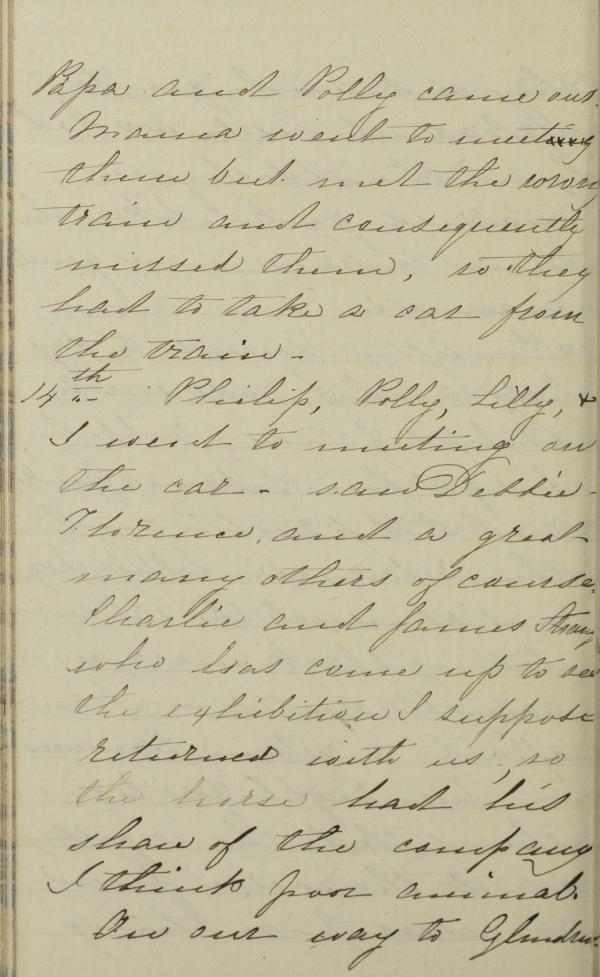 Papa and Polly came out.
Mama went to meeting
them but met the wrong
train and consequently
missed them, so they
had to take a car from
the train -
14th Philip, Polly, Lilly, +
I went to meeting on
the car - saw Debbie -
Florence, and a great
many others of course.
Charlie and James
who has come up to see
the exhibition I suppose
returned with us, so
the horse had his
share of the company
I think poor animal.
On our way to